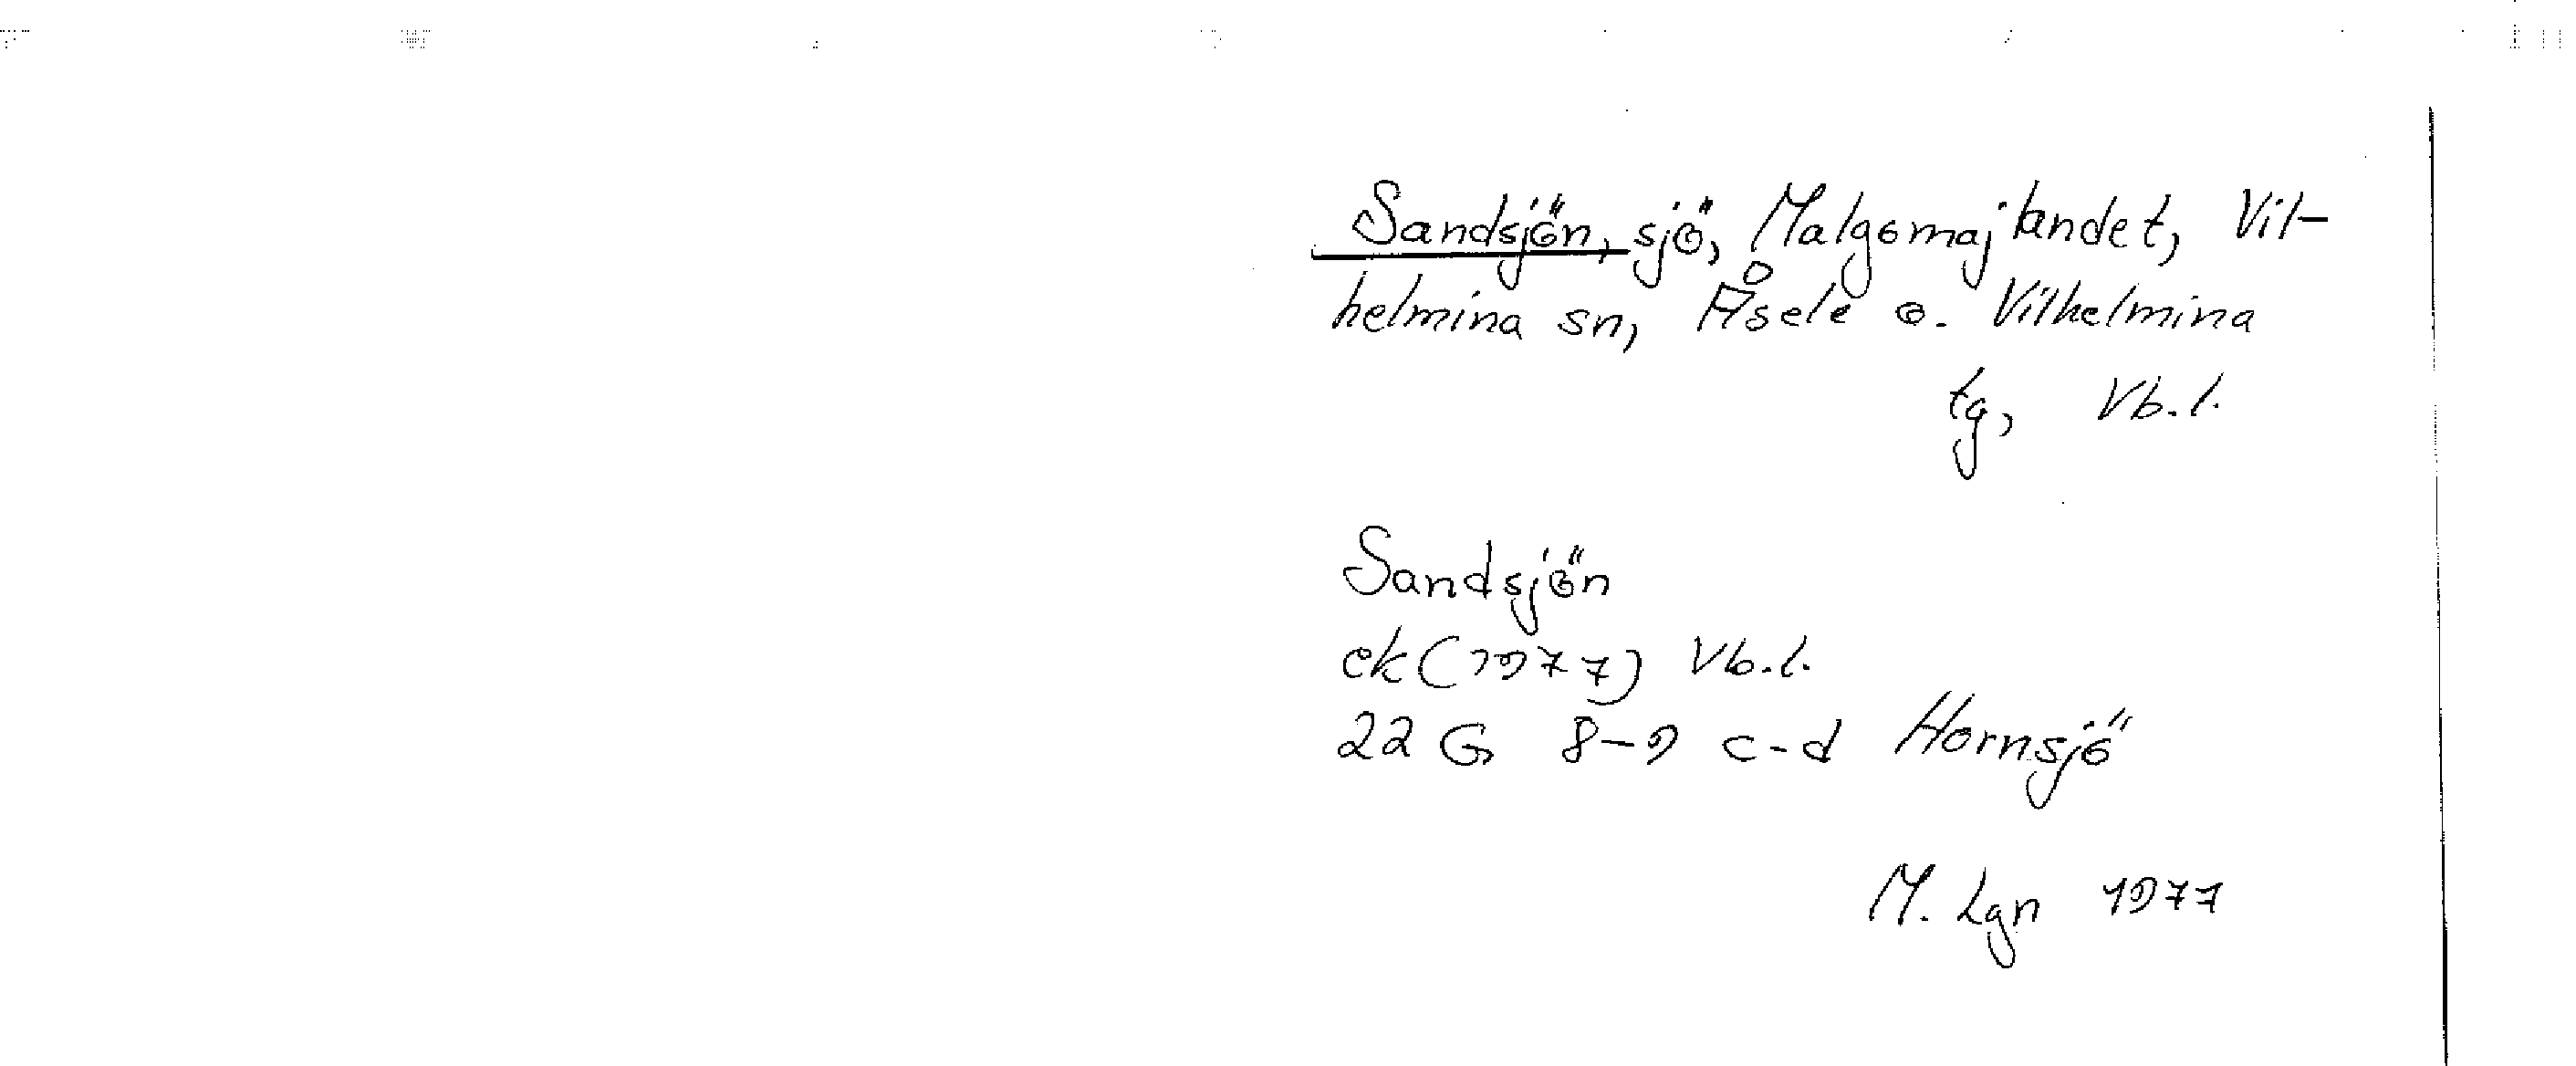 Sandsjön, sjö, Malgomajlandet, Vil-
helmina sn, Åsele o. Vilhelmina
tg, Vb.l.
Sandsjön
ek (1977) Vb.l.
22 G 8-9 c-d Hornsjö
M. Lgn 1977